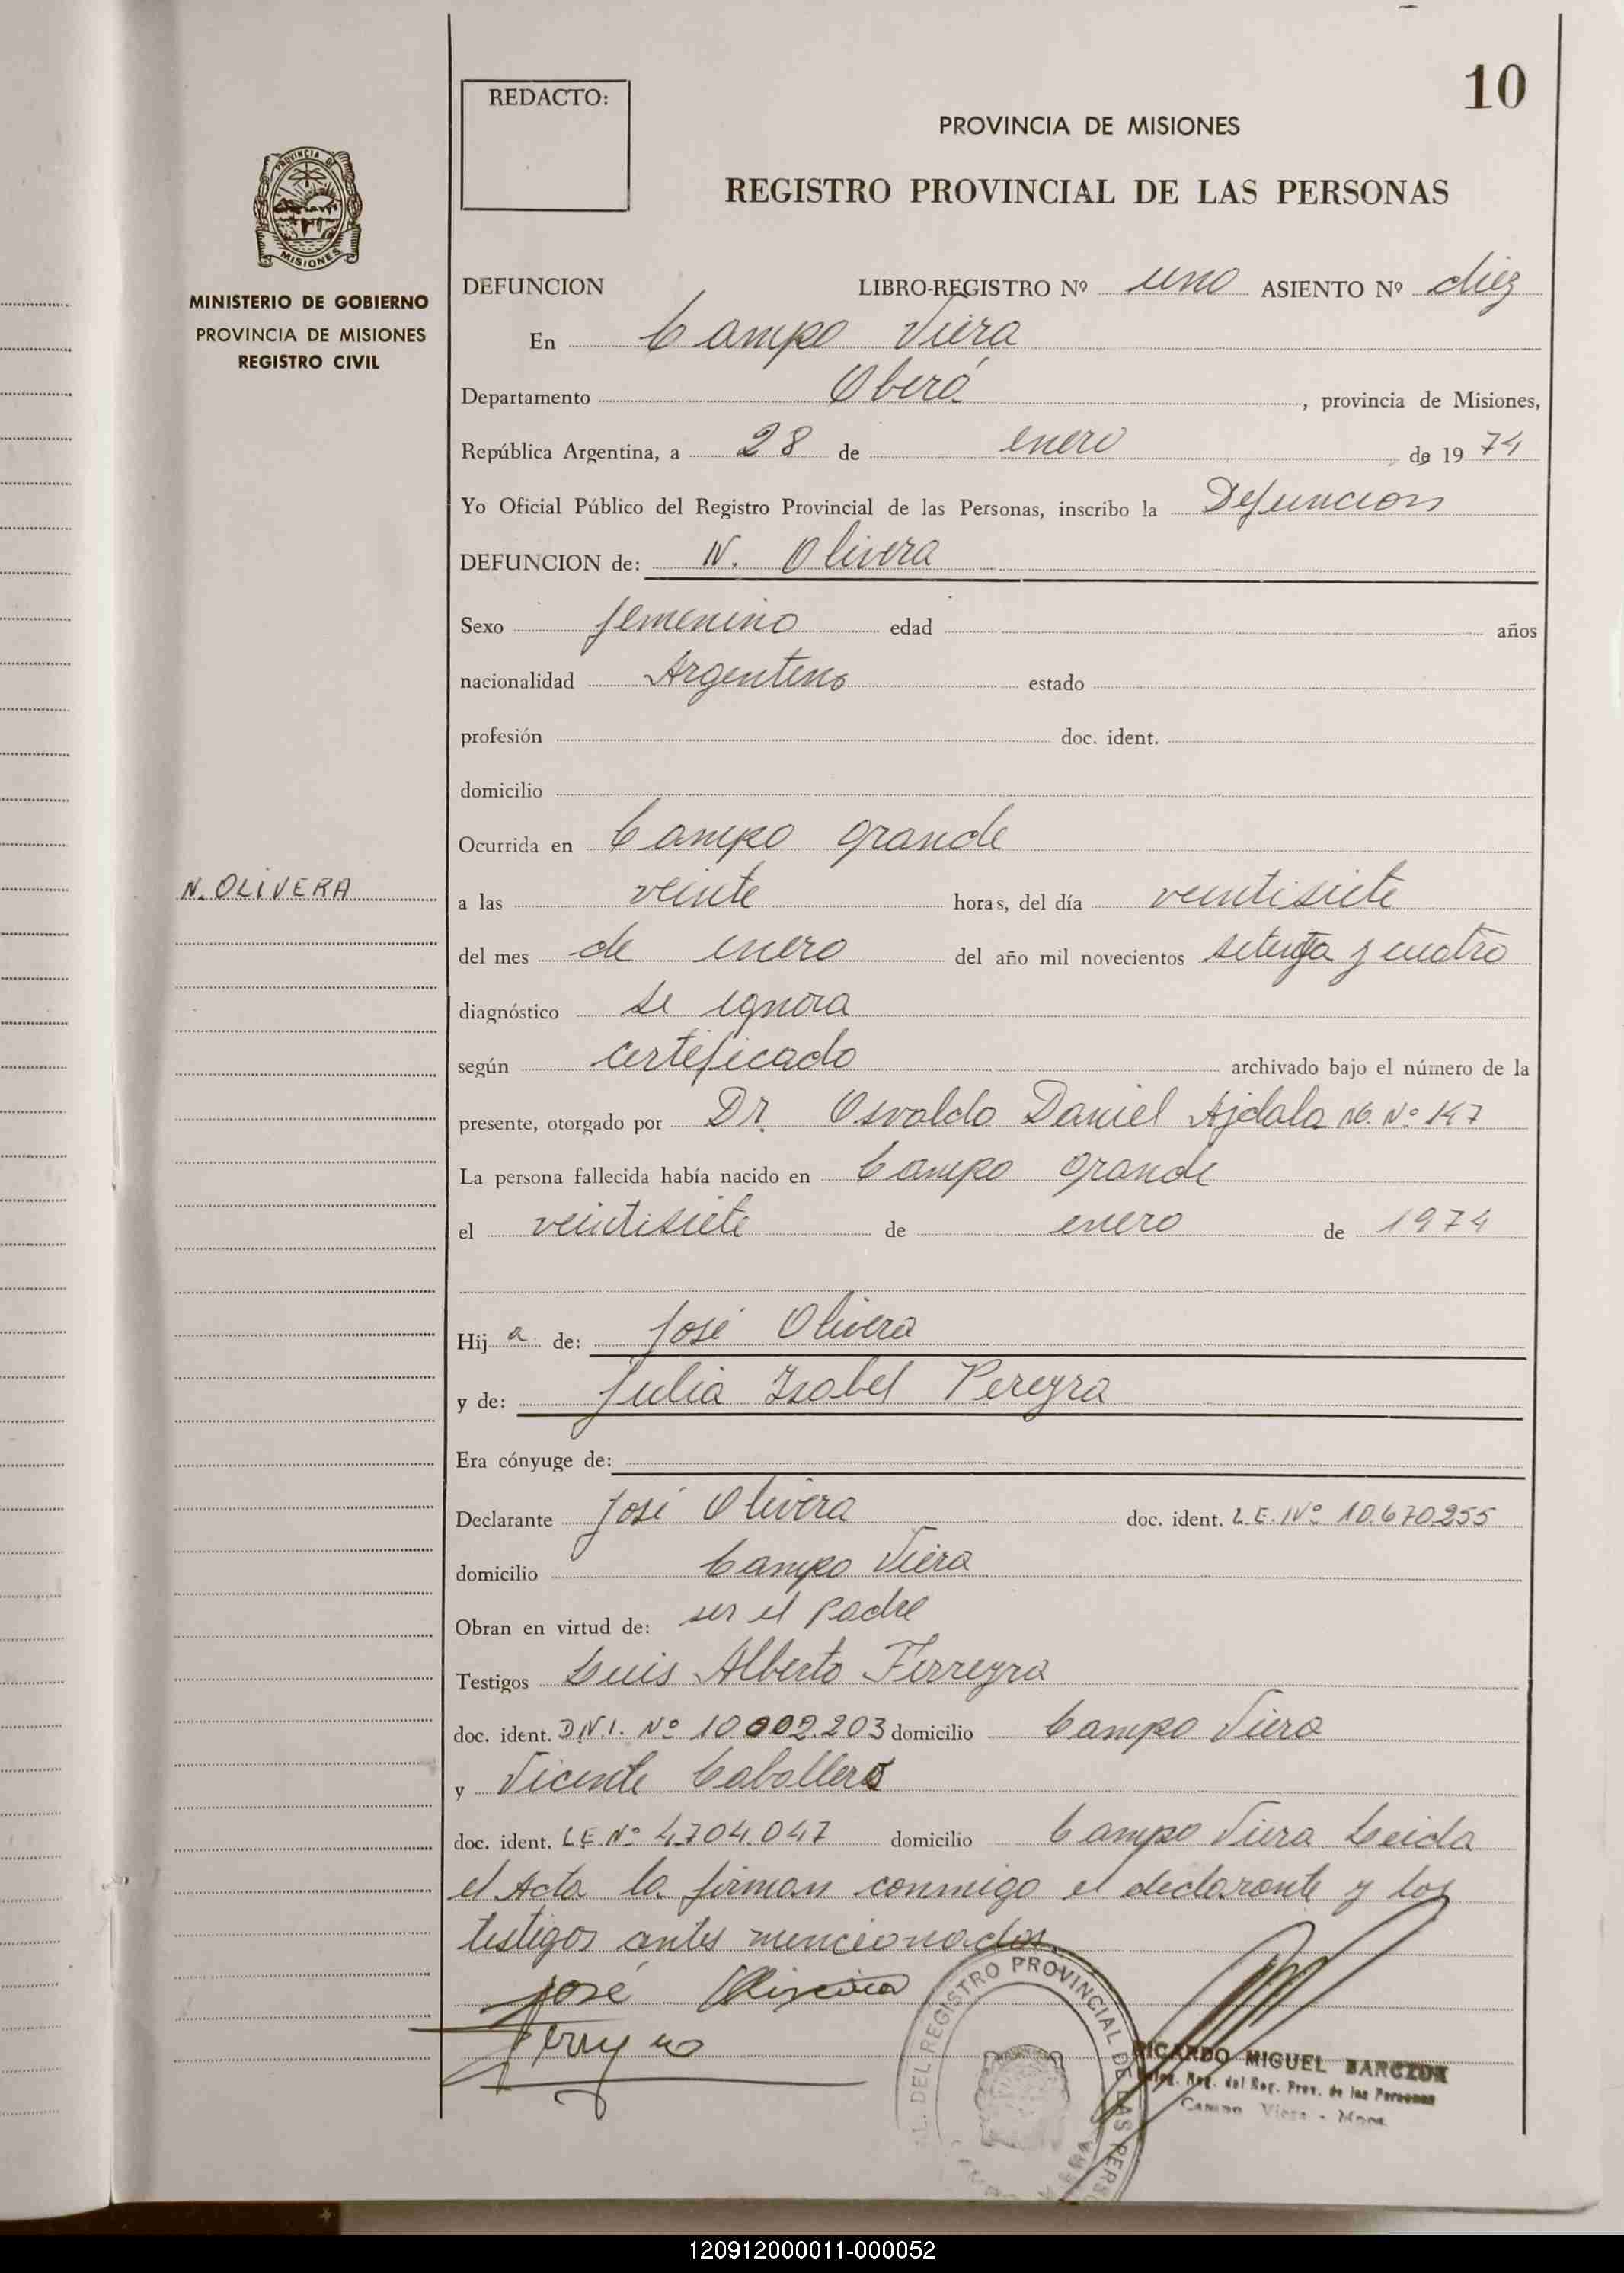 10
REDACTO:
PROVINCIA DE MISIONES
REGISTRO PROVINCIAL DE LAS PERSONAS
PROVINCIA DE
MISIONES
MINISTERIO DE GOBIERNO
PROVINCIA DE MISIONES
REGISTRO CIVIL
DEFUNCION LIBRO-REGISTRO Nº uno ASIENTO Nº diez
En Campo Viera
Departamento Oberá , provincia de Misiones,
República Argentina, a 28 de enero de 19 74
Yo Oficial Público del Registro Provincial de las Personas, inscribo la Defuncion
DEFUNCION de: N. Olivera
Sexo femenino edad años
nacionalidad Argentino estado
profesión doc. ident.
domicilio
Ocurrida en Campo grande
N. OLIVERA
a las veinte horas, del día veintisiete
del mes de enero del año mil novecientos setenta y cuatro
diagnóstico se ignora
según certificado archivado bajo el número de la
presente, otorgado por Dr. Osvaldo Daniel Ajdala Nº 147
La persona fallecida había nacido en Campo grande
el veintisiete de enero de 1974
Hij a de: José Olivera
y de: Julia Isabel Pereyra
Era cónyuge de:
Declarante José Olivera doc. ident. L.E. Nº 10.670.255
domicilio Campo Viera
Obran en virtud de: ser el padre
Testigos Luis Alberto Ferreyra
doc. ident. D.N.I. Nº 10.002.203 domicilio Campo Viera
y Vicente Caballero
doc. ident. L.E. Nº 4.704.047 domicilio Campo Viera Leida
el Acta la firman conmigo el declarante y los
testigos antes mencionados.
José Oliveira
Ferreyra
DEL REGISTRO PROVINCIAL DE LAS PERSO
RICARDO MIGUEL BARCZUK
Deleg. Reg. del Reg. Prov. de las Personas
Campo Viera - Mnes.
120912000011-000052